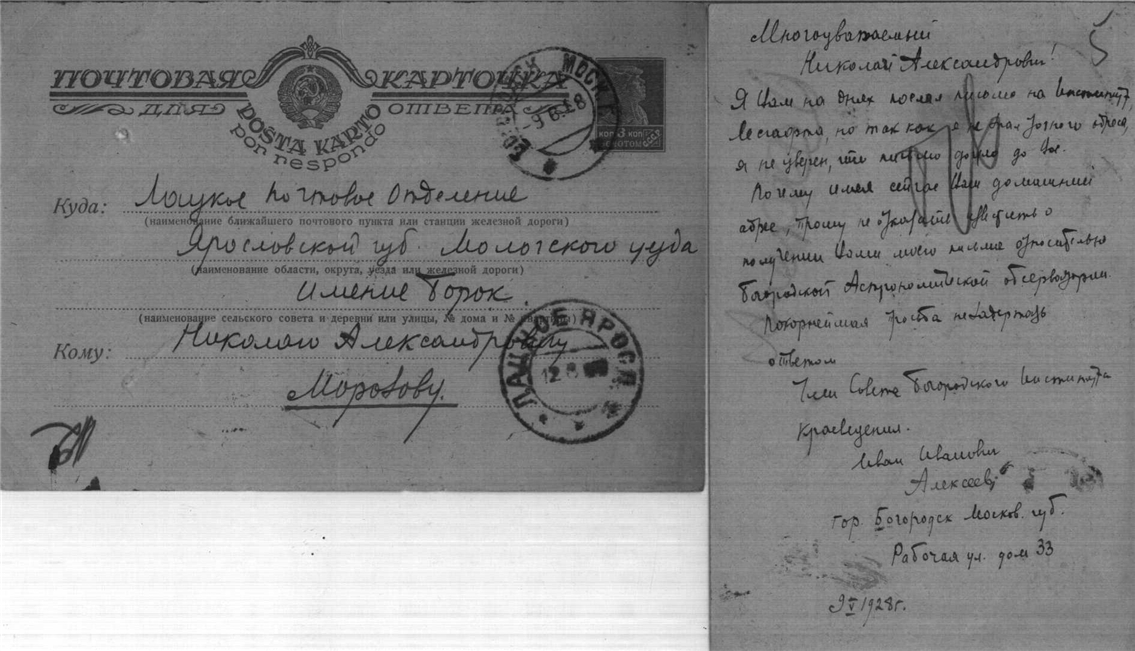 ПОЧТОВАЯ КАРТОЧКА
ДЛЯ ОТВЕТА
POŜTA KARTO
por respondo
БОГОРОДСК МОСК. Г.
-9.5.28
КОП 3 КОП
ЗОЛОТОМ
Куда: Лацкое почтовое отделение
(наименование ближайшего почтового пункта или станции железной дороги)
Ярославской губ. Мологского уезда
(наименование области, округа, уезда или железной дороги)
имение Борок.
(наименование сельского совета и деревни или улицы, № дома и № квартиры)
Кому: Николаю Александровичу
Морозову.
ЛАЦКОЕ ЯРОСЛ.
12
5
Многоуважаемый
Николай Александрович!
Я Вам на днях послал письмо на Институт
Лесгафта, но так как я не знал точного адреса,
я не уверен, что письмо дошло до Вас.
Почему имея сейчас Ваш домашний
адрес, прошу не отказать известить о
получении Вами моего письма относительно
Богородской Астрономической обсерватории.
Покорнейшая просьба не задержать
ответом
Член Совета Богородского Института
краеведения.
Иван Иванович
Алексеев
гор. Богородск Москов. губ.
Рабочая ул. дом 33
9 V 1928 г.